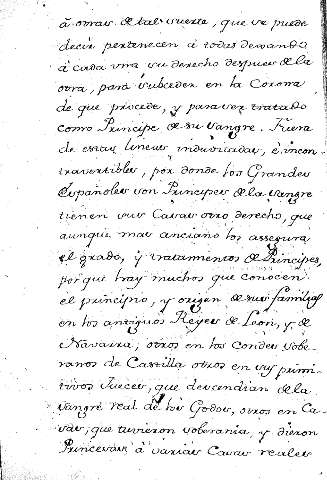 à otras de tal suerte, que se puede
decir pertenecen à todas demanda
à cada una su derecho despues de la
otra, para subceder en la Corona
de que procede, y para ser tratado
como Principe de su sangre. Fuera
de estas lineas indubitadas, è incon
travertibles, por donde los Grandes
Españoles son Principes de la sangre
tienen sus Casas otro derecho, que
aunque mas anciano los assegura
el grado, y tratamientos de Principes,
porqui hay muchos que conocen
el principio, y origen de sus familias
en los antiguos Reyes de Leon, y de
Navarra; otros en los Condes sobe-
ranos de Castilla, otros en sus primi-
tivos Jueces, que descendian de la
sangre real de los Godos, otros en Ca-
sas, que tuvieron soberania, y dieron
Princesas à varias Casas reales